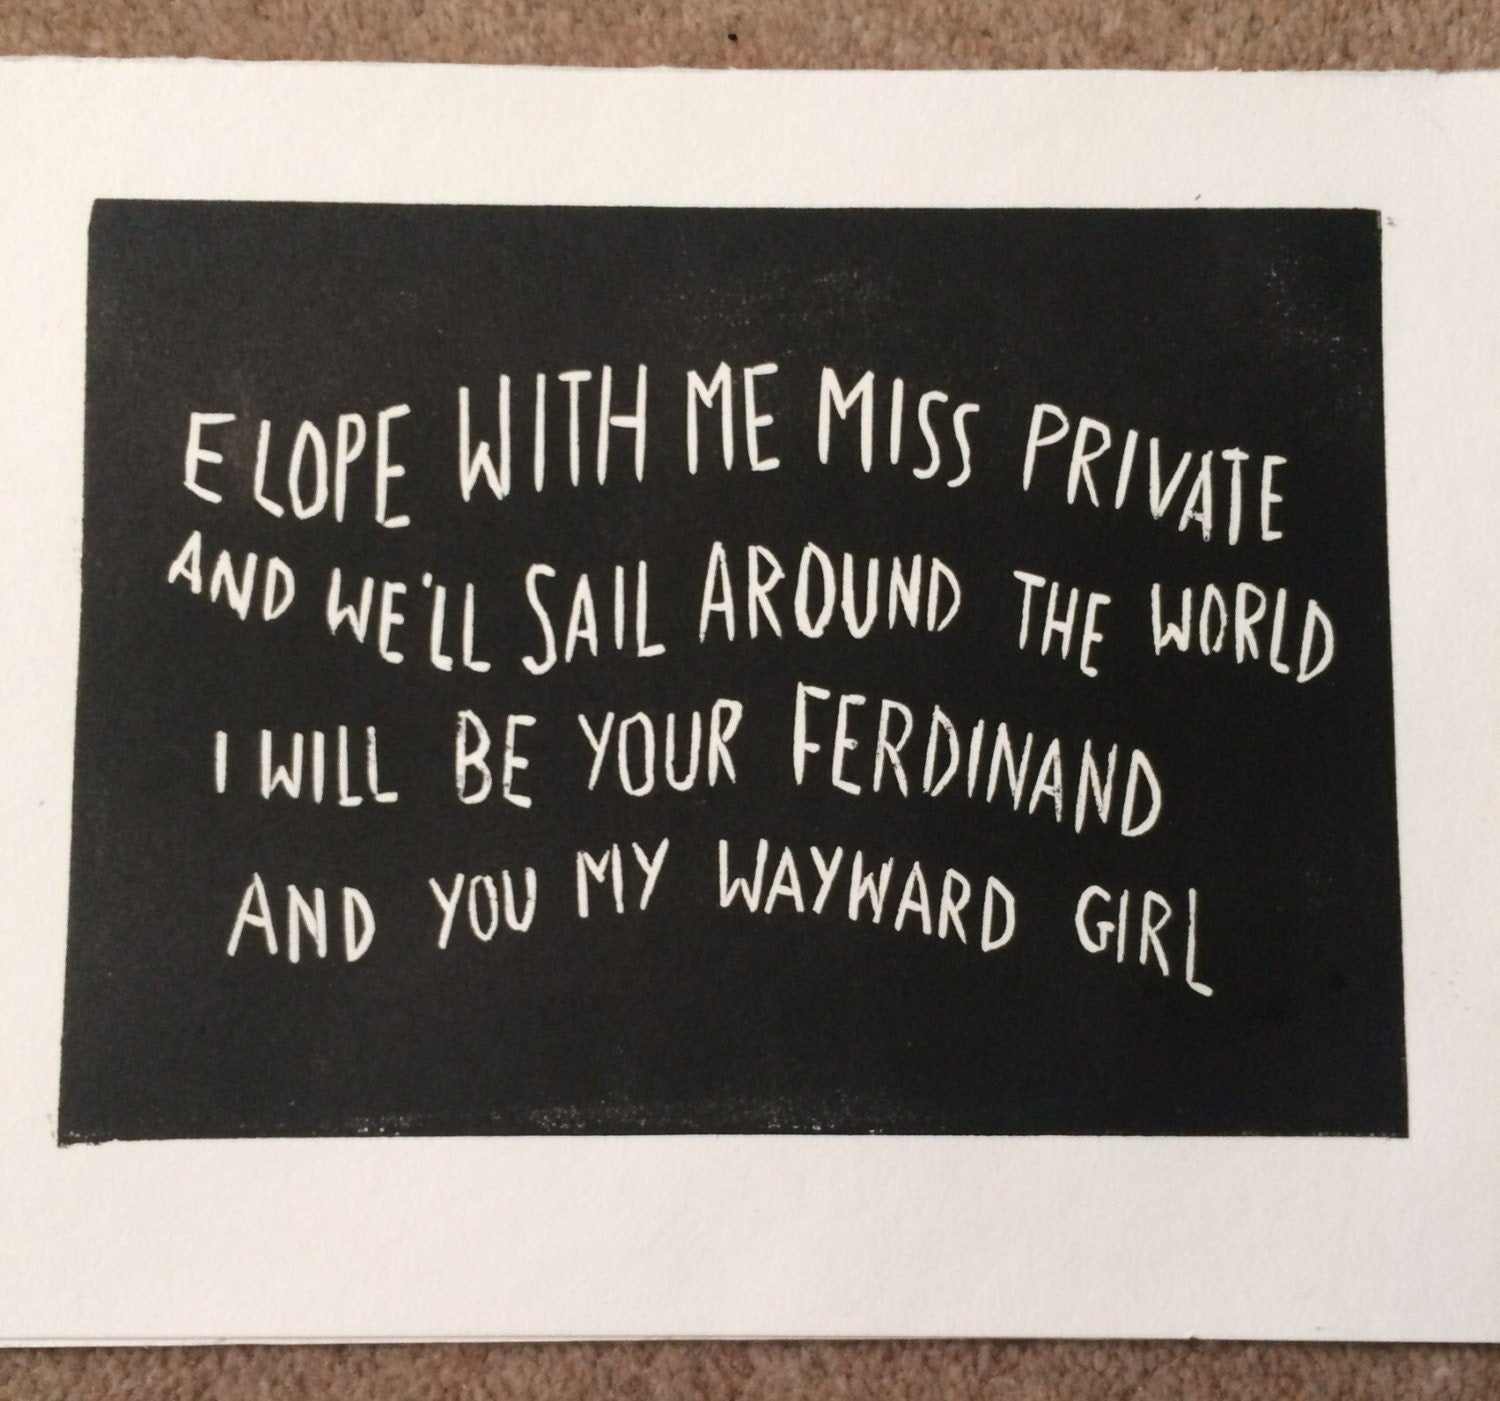 ELOPE WITH ME MISS PRIVATE
AND WE'LL SAIL AROUND THE WORLD
I WILL BE YOUR FERDINAND
AND YOU MY WAYWARD GIRL